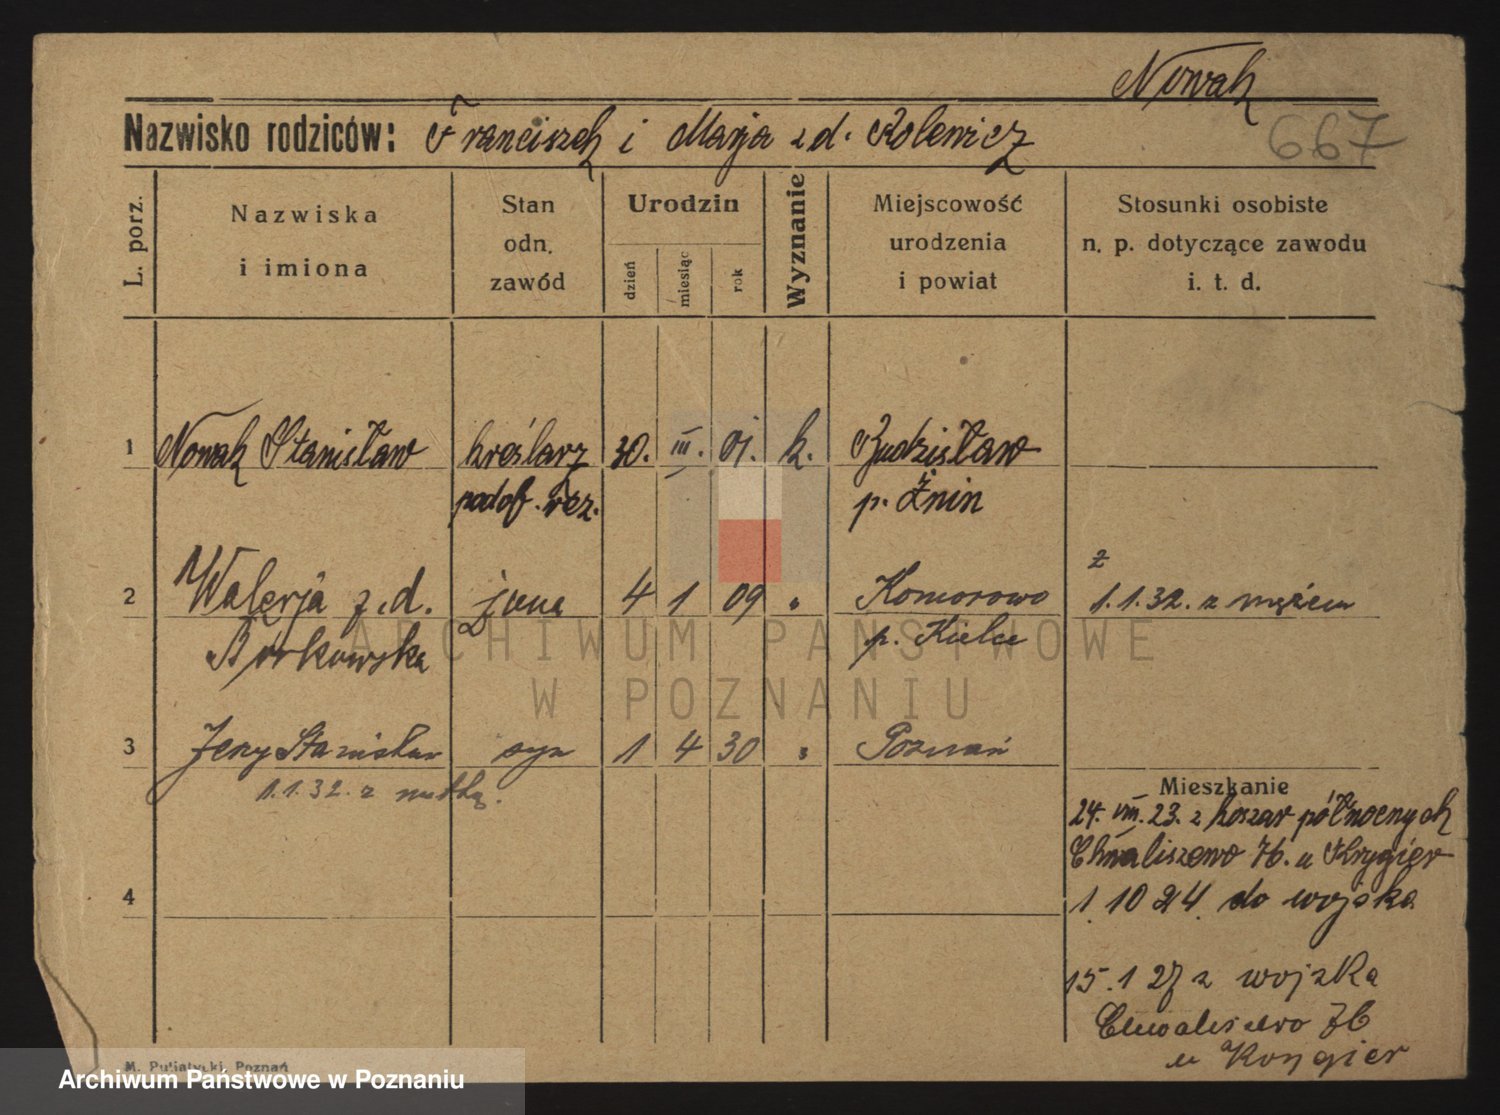 Nowak
Nazwisko rodziców: Franciszek i Marja z d. Rolewicz
667
L. porz.
Nazwiska
i imiona
Stan
odn.
zawód
Urodzin
dzień
miesiąc
rok
Wyznanie
Miejscowość
urodzenia
i powiat
Stosunki osobiste
n. p. dotyczące zawodu
i. t. d.
1 Nowak Stanisław kreślarz 30. III. 01. k. Budzisław
podof. rez. p. Żnin
2 Walerja z. d. żona 4 1 09 " Komorowo
ż
1.1.32. z mężem
Borkowska p. Kielce
3 Jerzy Stanisław syn 1 4 30 " Poznań
1.1.32. z matką.
Mieszkanie
24. VIII. 23. z koszar północnych
Chwaliszewo 76. u Krygier
4
1 10 24 do wojska
15. 1 27 z wojska
Chwaliszewo 76
u Krygier
M. Putiatycki, Poznań
ARCHIWUM PAŃSTWOWE
W POZNANIU
Archiwum Państwowe w Poznaniu